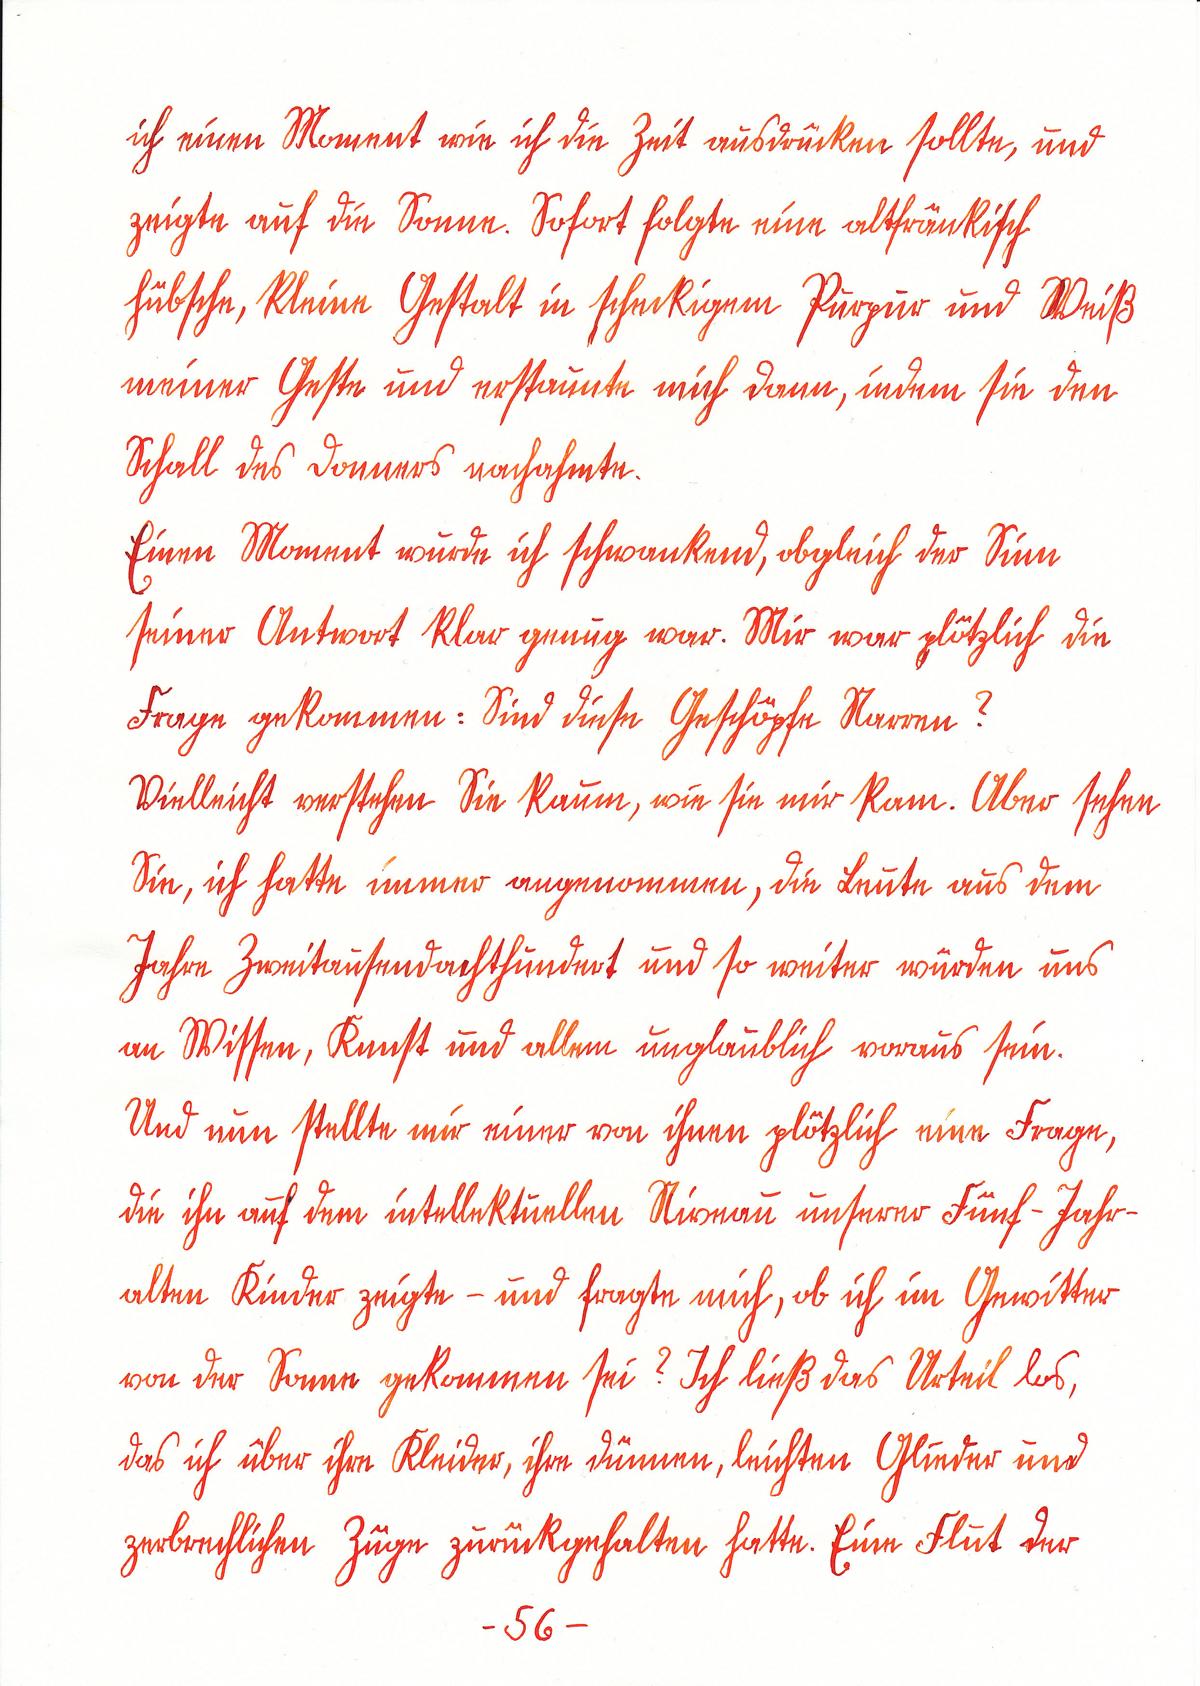 ich einen Moment wie ich die Zeit ausdrücken sollte, und
zeigte auf die Sonne. Sofort folgte eine altfränkisch
hübsche, kleine Gestalt in scheckigem Purpur und Weiß
meiner Geste und erstaunte mich dann, indem sie den
Schall des Donners nachahmte.
Einen Moment wurde ich schwankend, obgleich der Sinn
seiner Antwort klar genug war. Mir war plötzlich die
Frage gekommen: Sind diese Geschöpfe Narren?
Vielleicht verstehen Sie kaum, wie sie mir kam. Aber sehen
Sie, ich hatte immer angenommen, die Leute aus dem
Jahre Zweitausendachthundert und so weiter würden uns
an Wissen, Kunst und allem unglaublich voraus sein.
Und nun stellte mir einer von ihnen plötzlich eine Frage,
die ihn auf dem intellektuellen Niveau unserer Fünf-Jahr-
alten Kinder zeigte - und fragte mich, ob ich im Gewitter
von der Sonne gekommen sei? Ich ließ das Urteil los,
das ich über ihre Kleider, ihre dünnen, leichten Glieder und
zerbrechlichen Züge zurückgehalten hatte. Eine Flut der
-56-